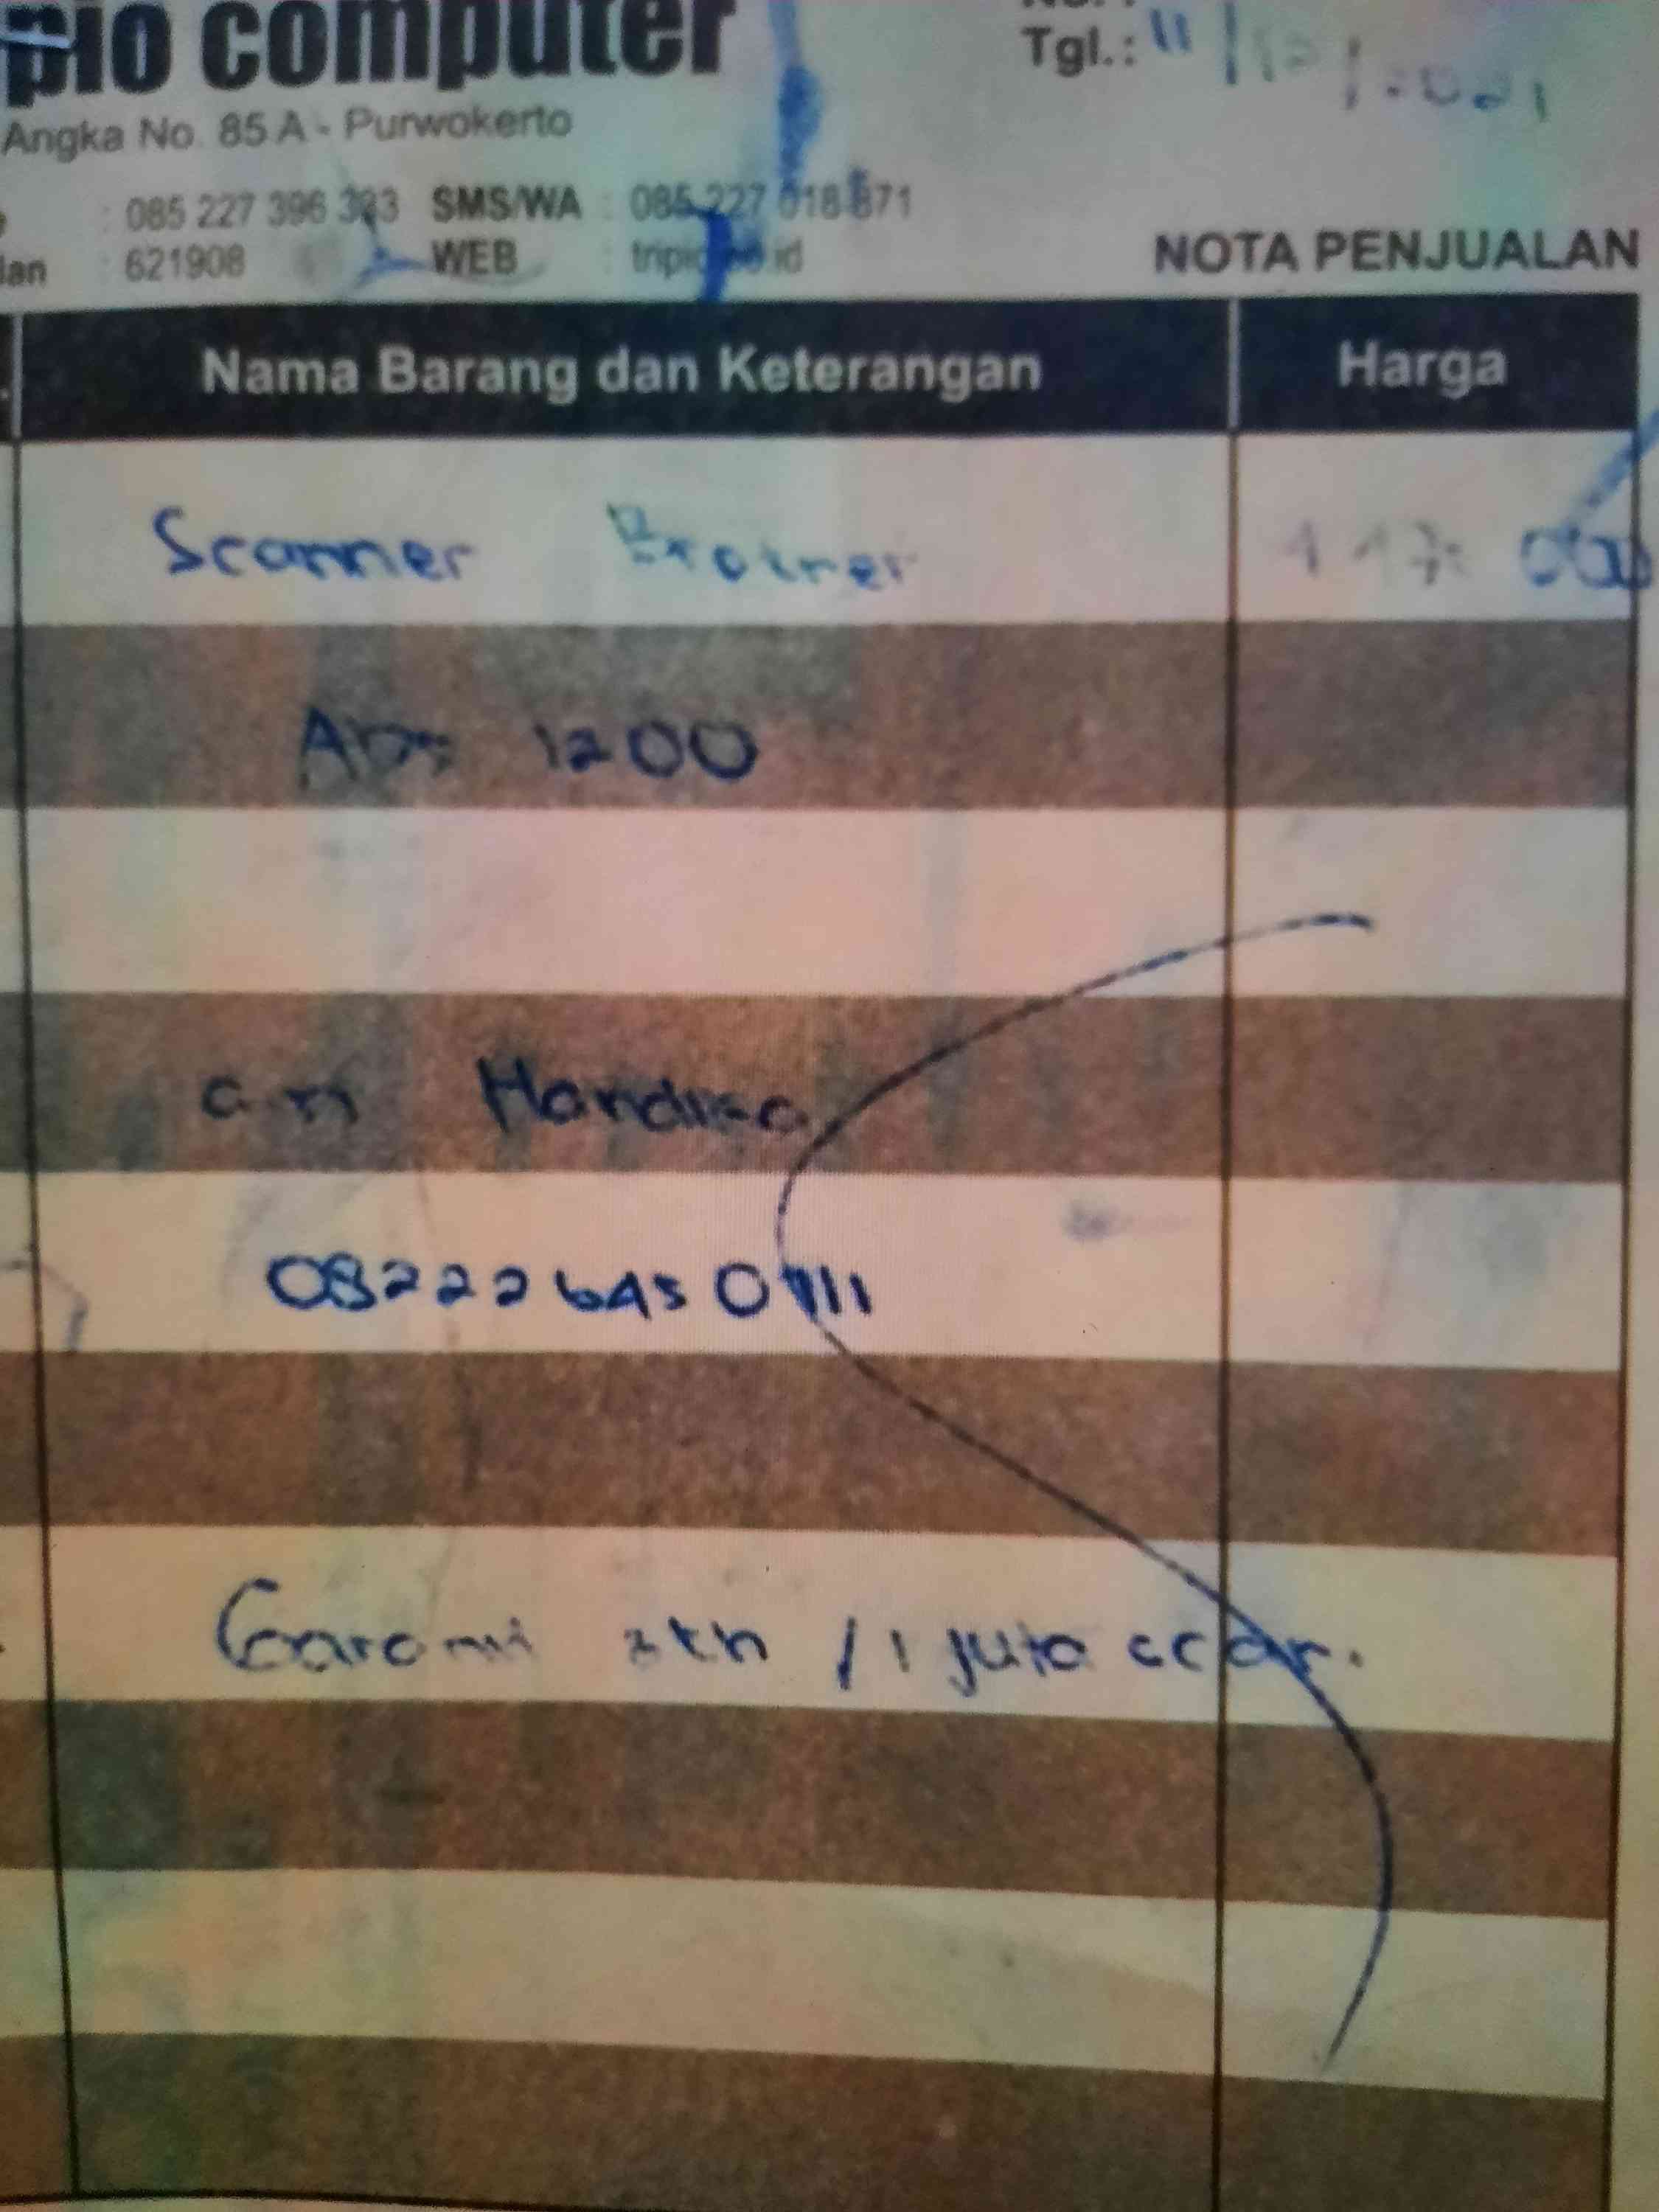 pio computer
Tgl.: 11/12/2021
Angka No. 85 A - Purwokerto
: 085 227 396 333 SMS/WA : 085 227 018 871
lan : 621908 WEB :
NOTA PENJUALAN
Nama Barang dan Keterangan Harga
Scanner Brother 000
ADS 1200
a.n
0822264501111
Garansi 3th / 1 juta